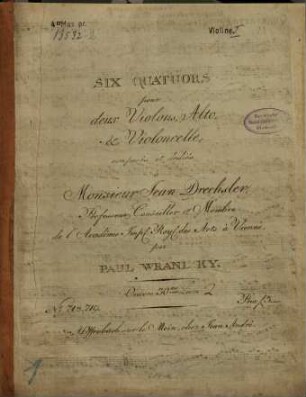 4° Mus. pr.
Violino I
SIX QUATUORS
pour
deux Violons, Alto,
& Violoncelle,
composés et dediés
à
Monsieur Jean Drechsler,
Professeur, Conseiller et Membre
de l'Académie Imp. Roy. des Arts à Vienne
par
PAUL WRANIZKY.
Oeuvre Livre 2
No.
A Offenbach sur le Mein, chez Jean André.